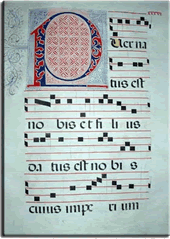 PUer na
tus est
no bis et fi li us
da tus est no bi s
cuius impe ri um